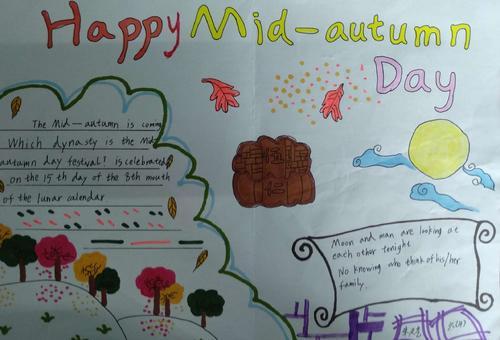 Happy Mid-autumn
Day
The Mid-autumn is coming
Which dynasty is the Mid
autumn day festival! is celebrated
on the 15 th day of the 8th mouth
of the lunar calendar
伍
仁
Moon and man are looking at
each other tonight
No knowing who think of his/her
family.